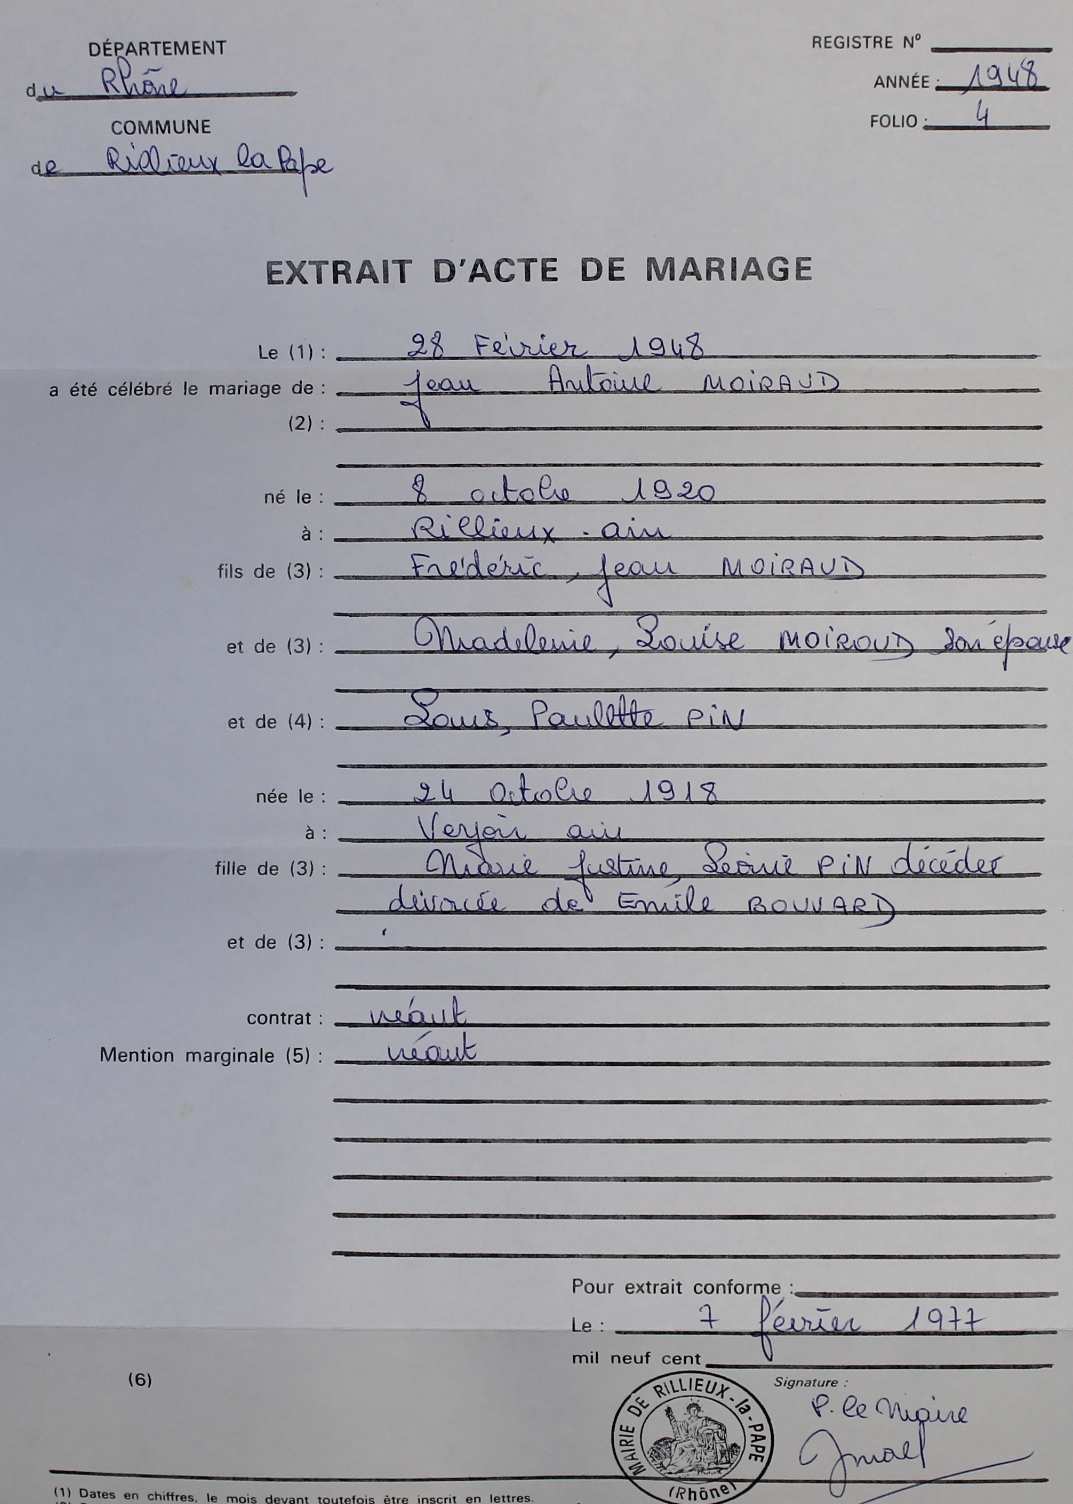 DÉPARTEMENT
du Rhône
COMMUNE
de Rillieux la Pape
REGISTRE Nº
ANNÉE : 1948
FOLIO : 4
EXTRAIT D'ACTE DE MARIAGE
Le (1) : 28 Février 1948
a été célébré le mariage de : Jean Antoine MOIRAUD
(2) :
né le : 8 octobre 1920
à : Rillieux - ain
fils de (3) : Frédéric, Jean MOIRAUD
et de (3) : Madeleine, Louise MOIROUD son épouse
et de (4) : Paulette PIN
née le : 24 Octobre 1918
à : ain
fille de (3) : Marie Justine, Léonie PIN décédée
divorcée de Emile BOUVARD
et de (3) :
contrat : néant
Mention marginale (5) : néant
Pour extrait conforme :
Le : 7 février 1977
mil neuf cent
(6)
Signature :
P. le Maire
MAIRIE DE RILLIEUX-la-PAPE
(Rhône)
(1) Dates en chiffres, le mois devant toutefois être inscrit en lettres.